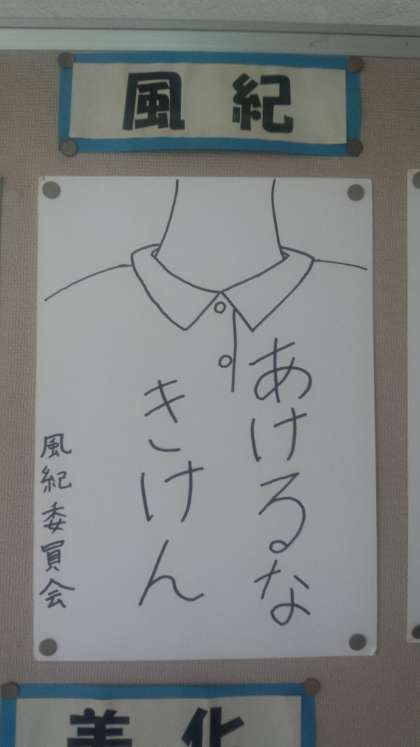 風紀
あけるな
きけん
風紀委員会
美化